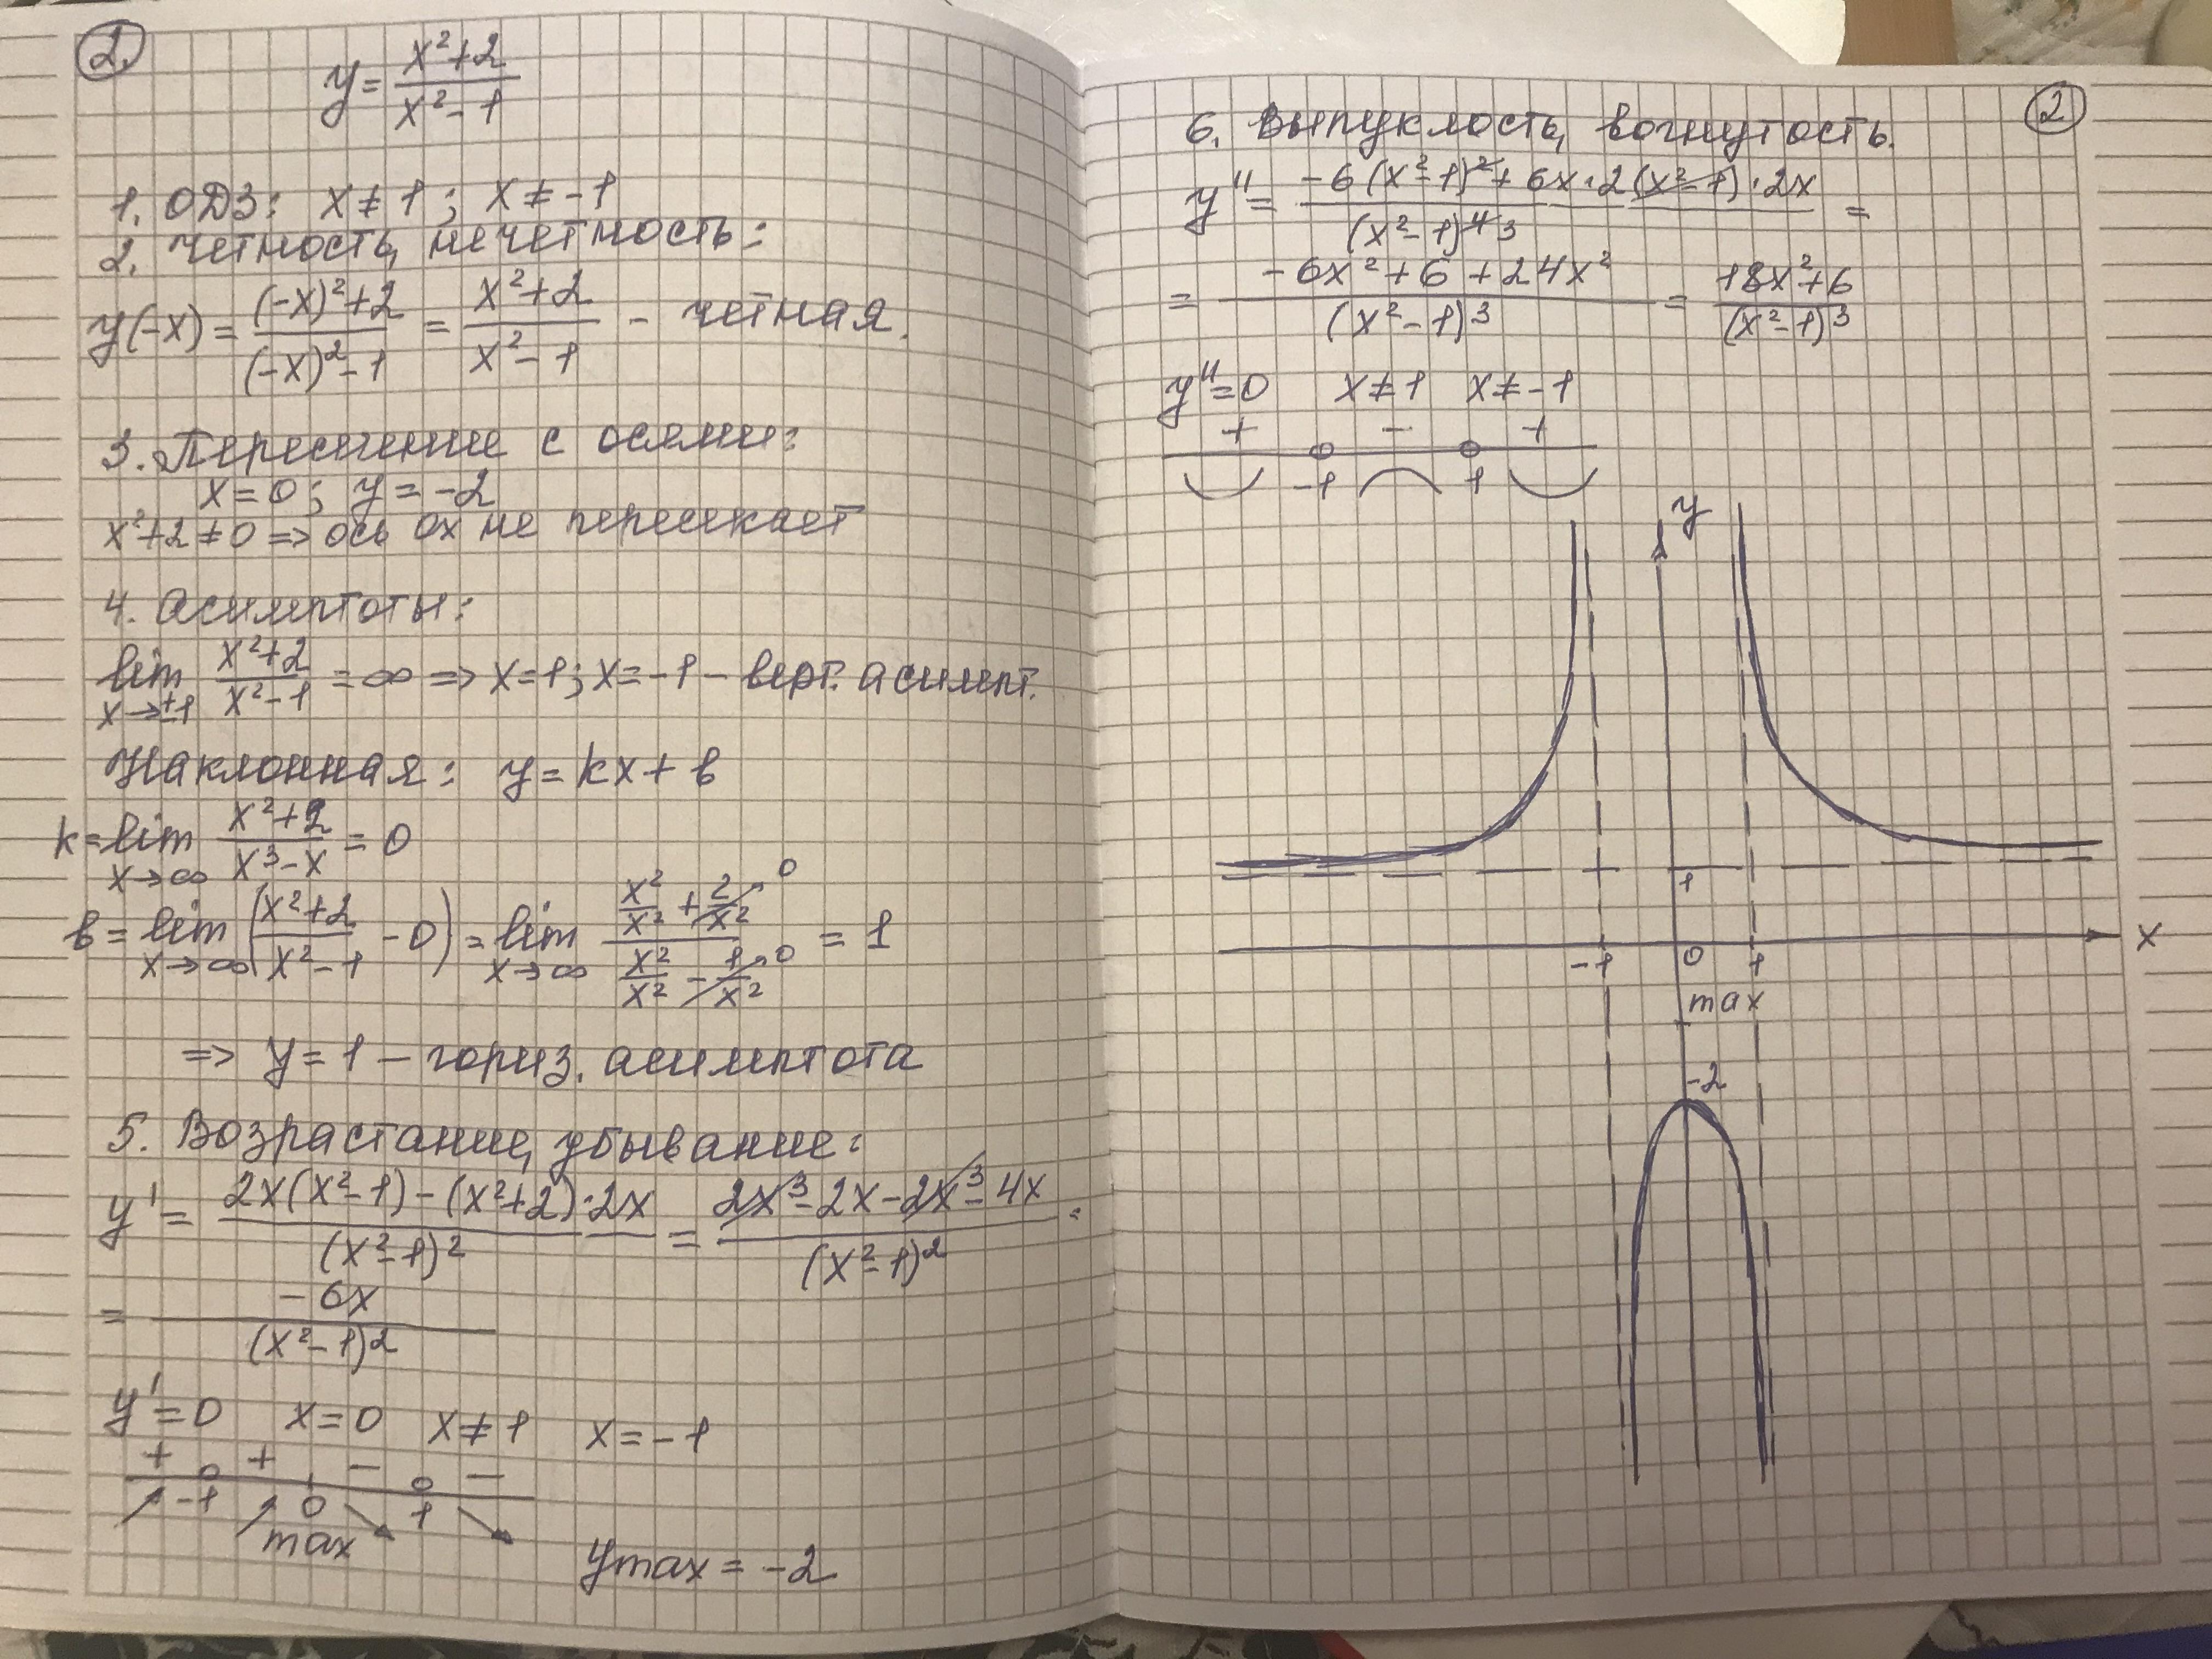 2.
y = (x²+2)/(x²-1)
1. ОДЗ: x ≠ 1; x ≠ -1
2. Четность, нечетность:
y(-x) = ((-x)²+2)/((-x)²-1) = (x²+2)/(x²-1) - четная.
3. Пересечение с осями:
x = 0; y = -2
x²+2 ≠ 0 => ось ox не пересекает
4. Асимптоты:
lim x→±1 (x²+2)/(x²-1) = ∞ => x=1; x=-1 - верт. асимпт.
Наклонная: y = kx + в
k = lim x→∞ (x²+2)/(x³-x) = 0
в = lim x→∞ ((x²+2)/(x²-1) - 0) = lim x→∞ (x²/x² + 2/x² → 0)/(x²/x² - 1/x² → 0) = 1
=> y = 1 - гориз. асимптота
5. Возрастание, убывание:
y' = (2x(x²-1) - (x²+2)·2x)/(x²-1)² = (2x³-2x-2x³-4x)/(x²-1)² =
= -6x/(x²-1)²
y' = 0 x = 0 x ≠ 1 x = -1
+ + - -
-1 0 1
max
y max = -2
2
6. Выпуклость, вогнутость.
y'' = (-6(x²-1)² + 6x·2(x²-1)·2x)/(x²-1)⁴ 3 =
= (-6x²+6+24x²)/(x²-1)³ = (18x²+6)/(x²-1)³
y'' = 0 x ≠ 1 x ≠ -1
+ - +
-1 1
y
1
x
-1 0 1
max
-2